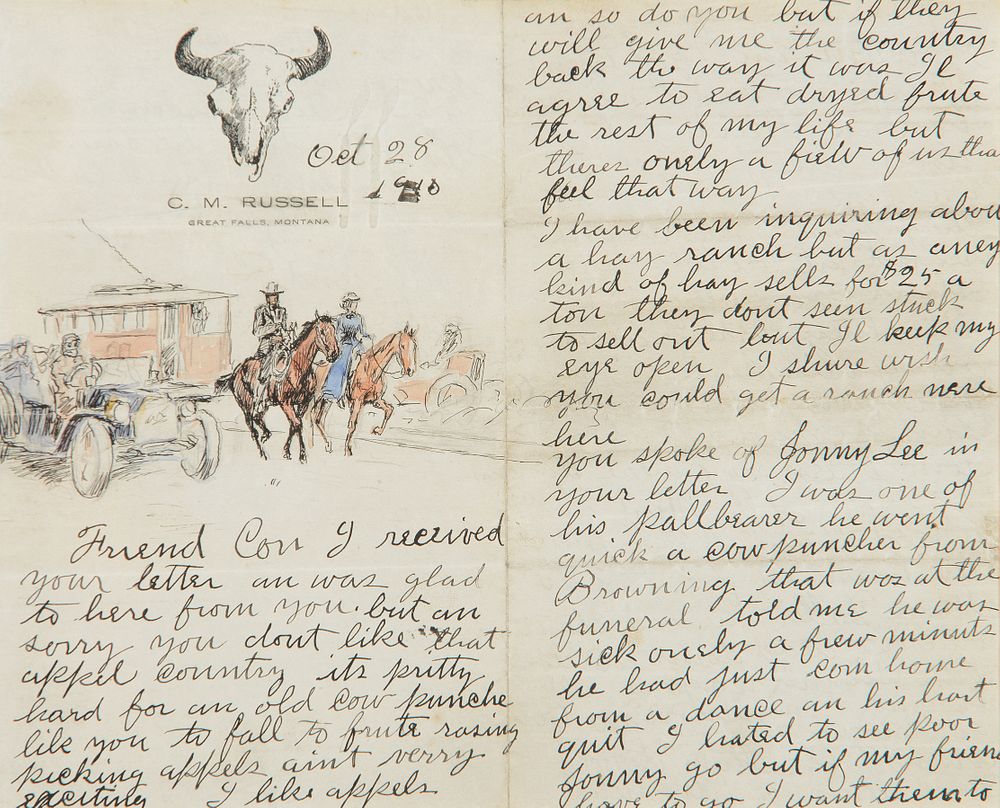 Oct 28
1910
C. M. RUSSELL
GREAT FALLS, MONTANA
Friend Con I received
your letter an was glad
to here from you. but an
sorry you dont like that
appel country its pritty
hard for an old cow punche
like you to fall to frute rasing
picking appels aint verry
exciting I like appels
an so do you but if they
will give me the country
back the way it was Il
agree to eat dryed frute
the rest of my life but
theres onely a fiew of us tha
feel that way
I have been inquiring abou
a hay ranch but as aney
kind of hay sells for $25 a
ton they dont seem stuck
to sell out but Il keep my
eye open I shure wish
you could get a ranch nere
here
you spoke of Jonny Lee in
your letter I was one of
his pallbearer he went
quick a cow puncher from
Browning that was at the
funeral told me he was
sick onely a frew minuts
he had just com home
from a dance an his hart
quit I hated to see poor
Jonny go but if my frien
have to go I want them to